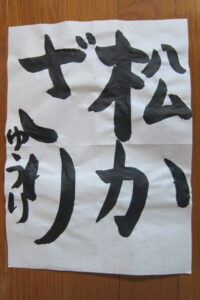 松か
ざり
ゆうり